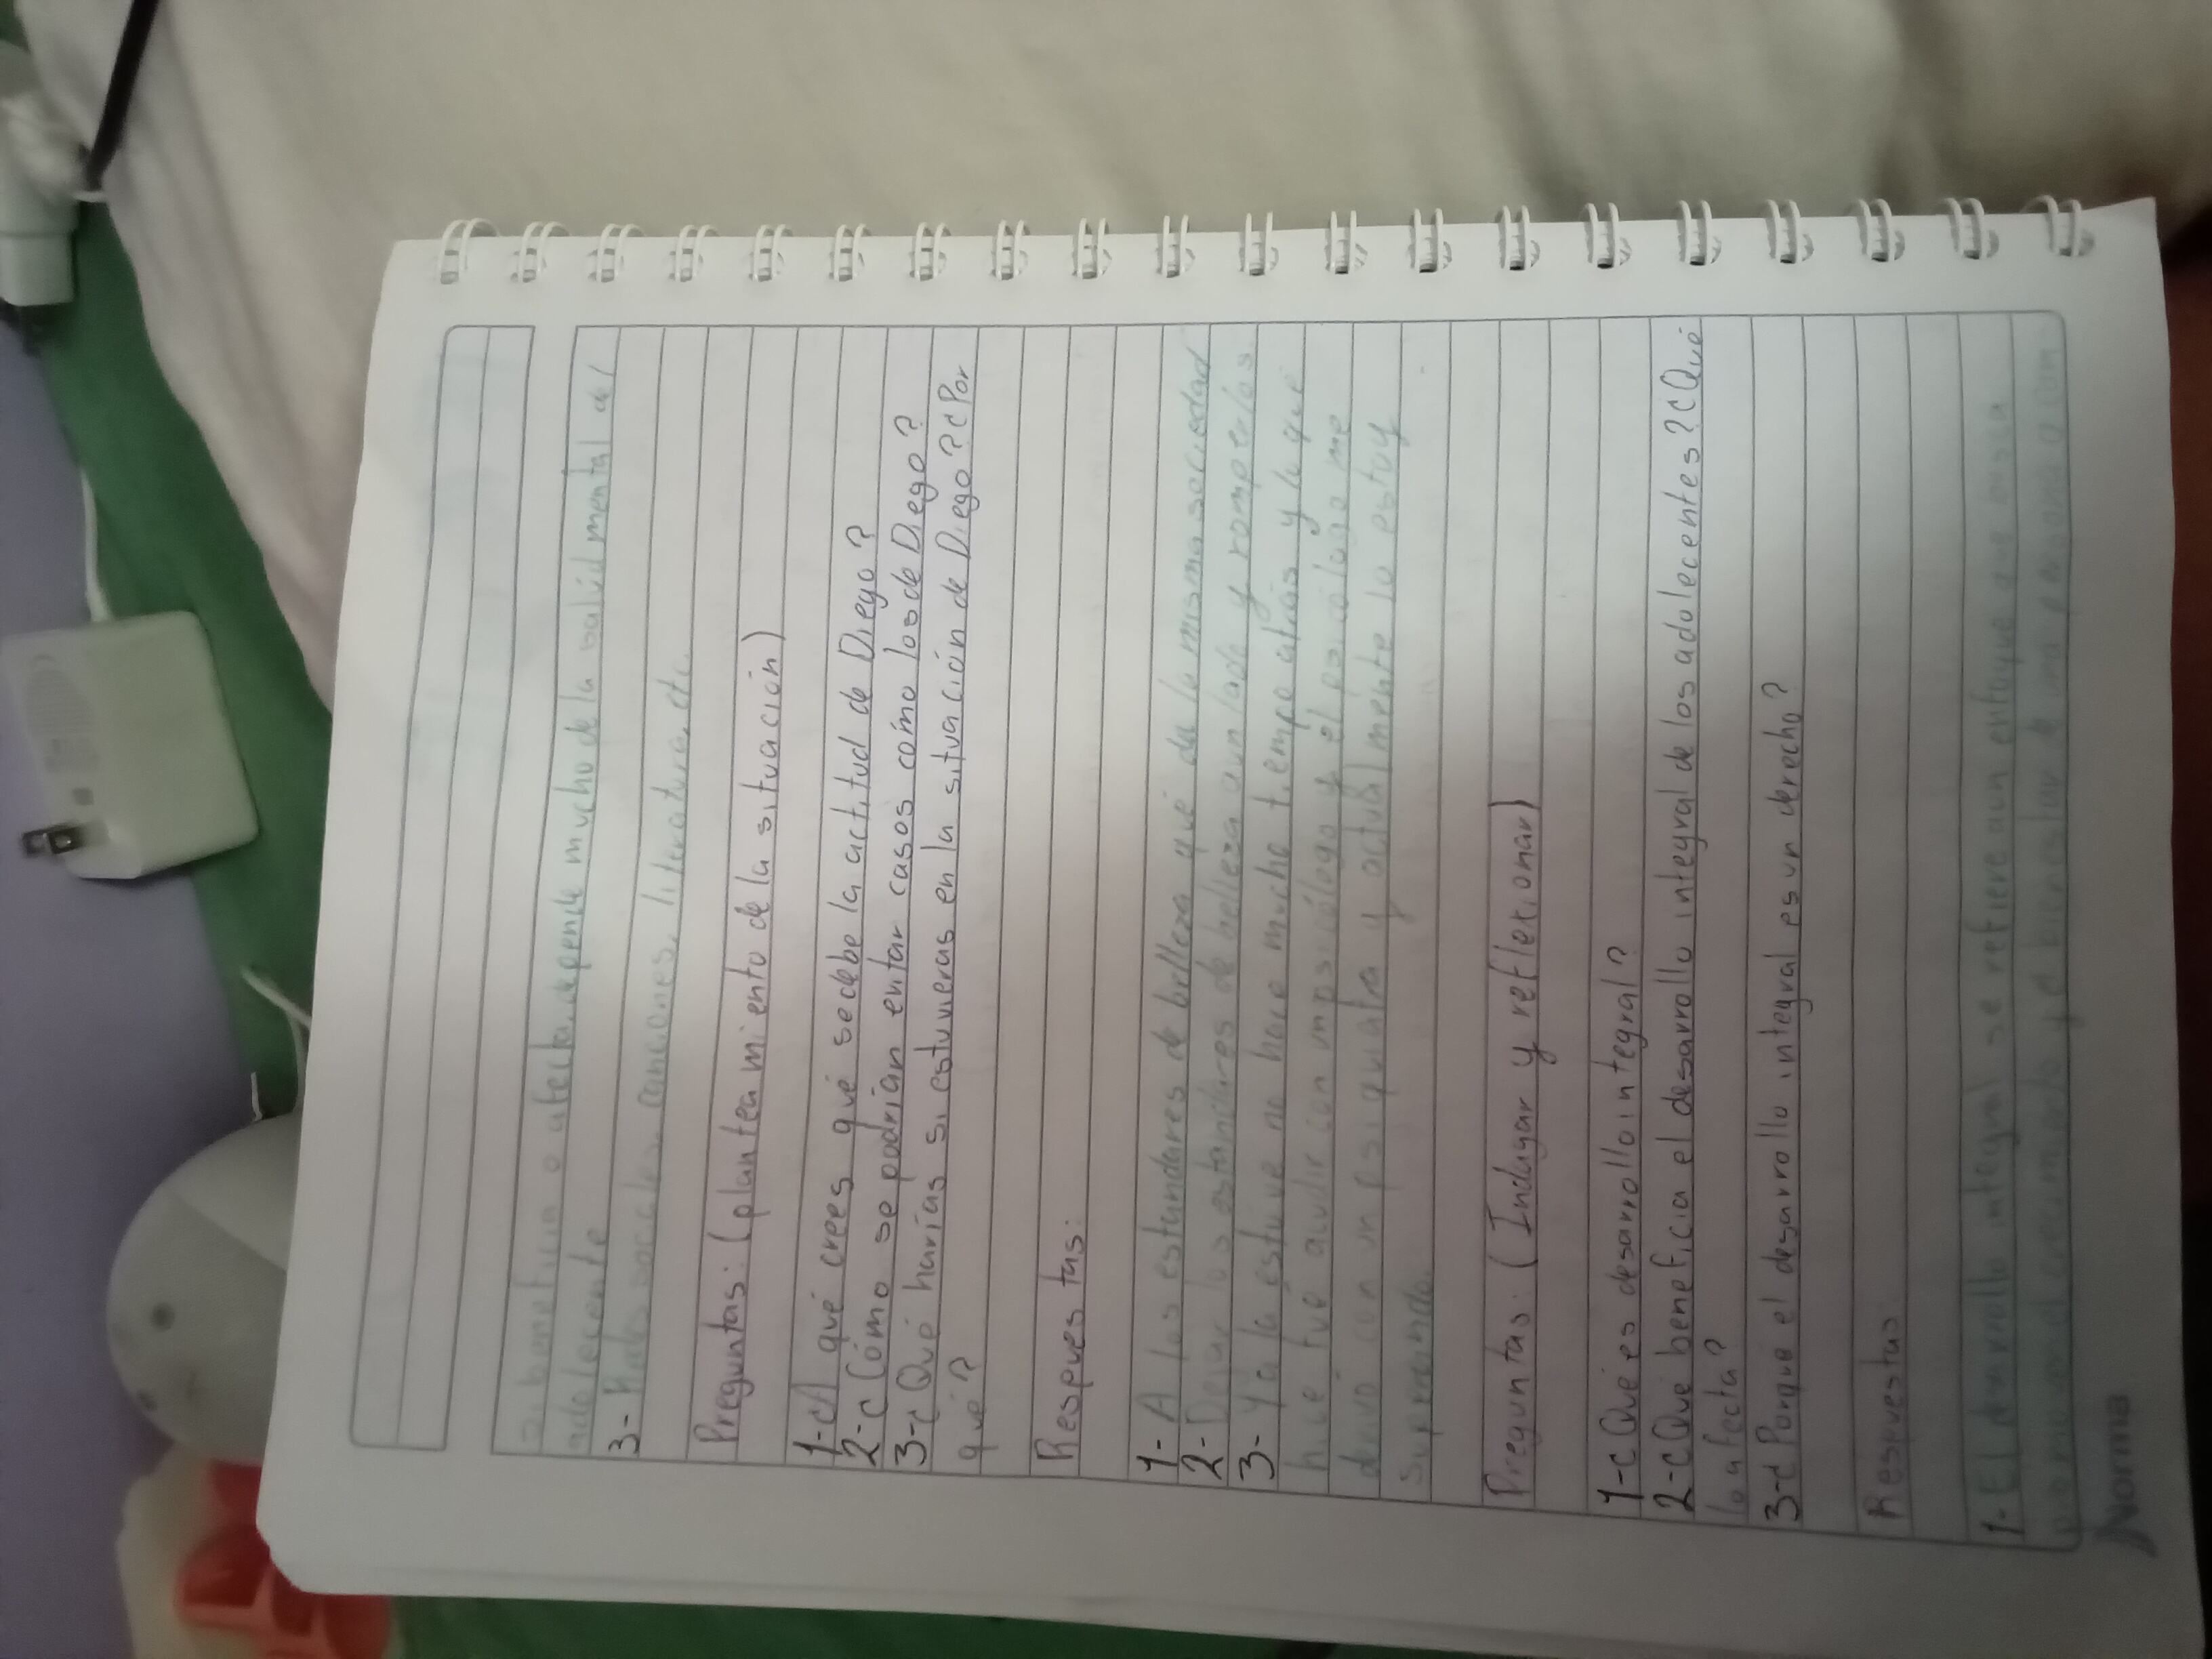 si beneficia o afecta, depende mucho de la salúd mental del
adolecente
3- Redes sociales, canciones, literatura, etc.
Preguntas: (planteamiento de la situación)
1-¿A qué crees qué se debe la actitud de Diego?
2-¿Cómo se podrían evitar casos cómo los de Diego?
3-¿Qué harías si estuvieras en la situación de Diego? ¿Por
qué?
Respuestas:
1- A los estandares de belleza qué da la misma sociedad
2- Dejar los estandares de belleza aun lado y romperlos.
3- Ya la estuve no hace mucho tiempo atrás y lo qué
hice fué acudir con un psicólogo y el psicólogo me
derivo con un psiquiatra y actualmente lo estoy
superando.
Preguntas: (Indagar y reflexionar)
1-¿Qué es desarrollo integral?
2-¿Qué beneficia el desarrollo integral de los adolecentes? ¿Qué
lo afecta?
3-¿Porqué el desarrollo integral es un derecho?
Respuestas
1- El desarrollo integral se refiere aun enfoque que busca
promover el crecimiento y el bienestar de una persona
Norma